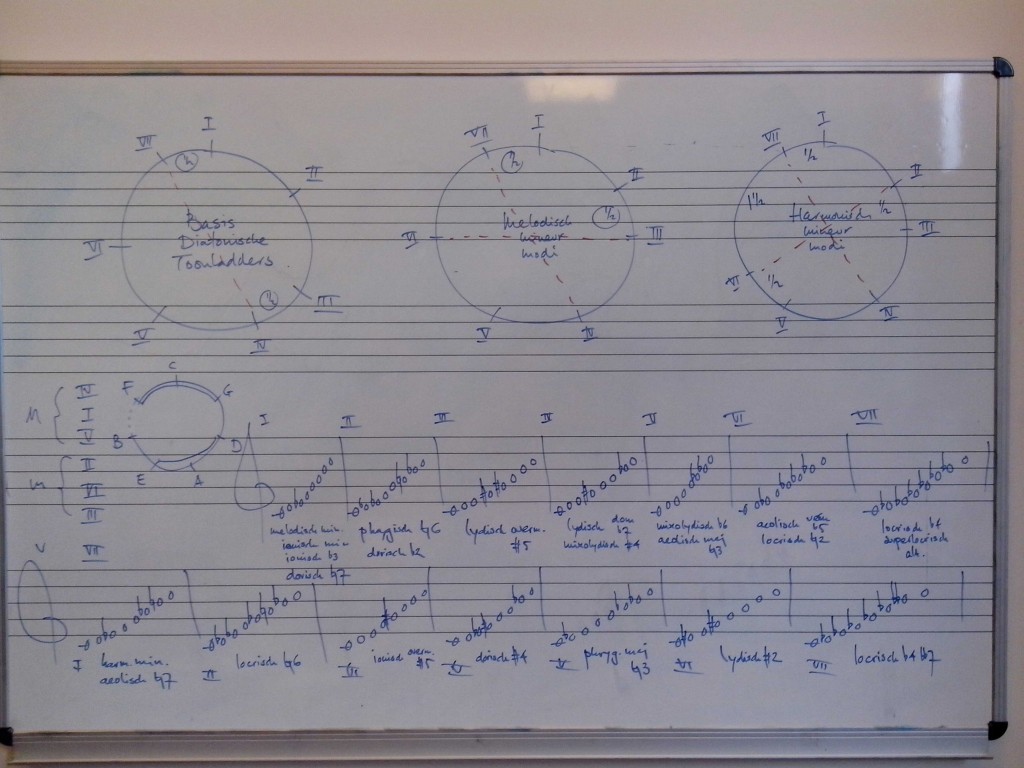 I
II
III
IV
V
VI
VII
½
½
Basis
Diatonische
Toonladders
I
II
III
IV
V
VI
VII
½
½
Melodisch
mineur
modi
I
II
III
IV
V
VI
VII
½
½
½
1½
Harmonisch
mineur
modi
M
IV
I
V
m
II
VI
III
V
VII
C
G
D
A
E
B
F
I
II
III
IV
V
VI
VII
melodisch min.
ionisch min
ionisch b3
dorisch ♮7
phrygisch ♮6
dorisch b2
lydisch overm.
#5
lydisch dom
b7
mixolydisch #4
mixolydisch b6
aeolisch maj
♮3
aeolisch
b5
locrisch ♮2
locrisch b4
superlocrisch
alt.
I harm. min.
aeolisch ♮7
II locrisch ♮6
III ionisch overm.
#5
IV dorisch #4
V phryg. maj
♮3
VI lydisch #2
VII locrisch b4 bb7